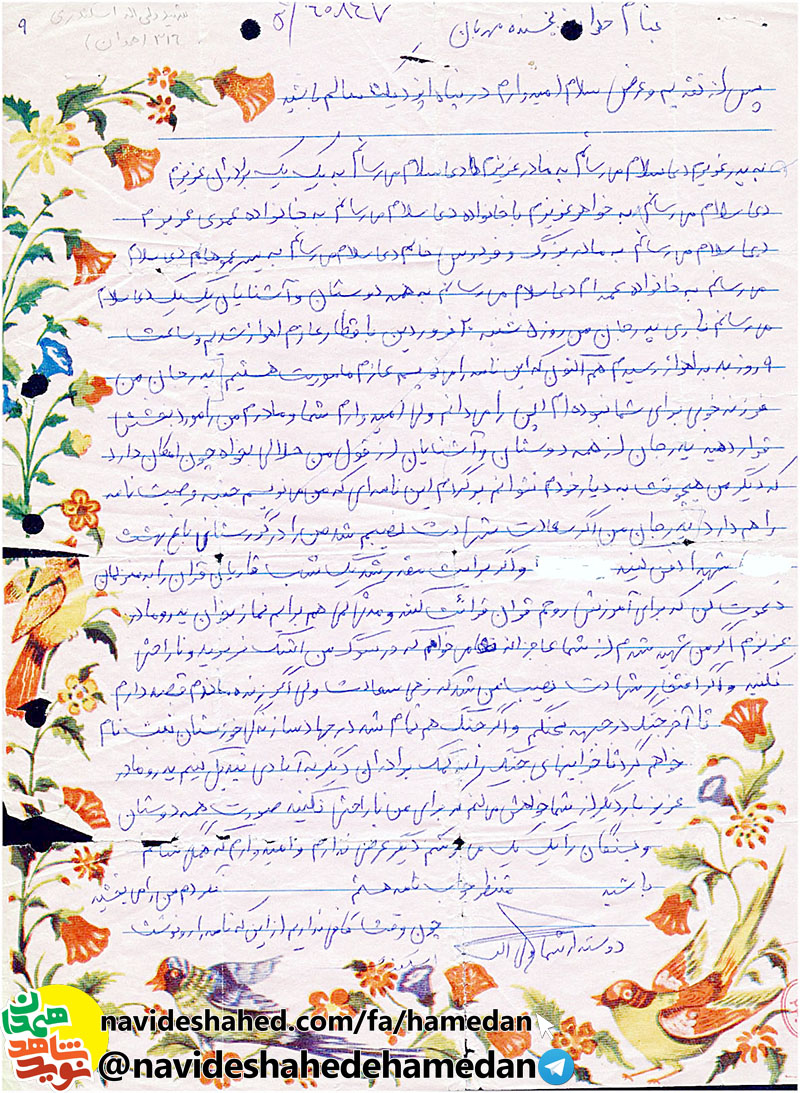 ۹
۵/۶۰۸۴۷
شهید ولی اله اسکندری
۳۱۶ (همدان)
بنام خداوند بخشنده مهربان
پس از تقدیم و عرض سلام امیدوارم در پناه ایزد سالم باشید
به پدر عزیزم دعا سلام می رسانم به مادر عزیزم دعا سلام می رسانم به یک یک برادران عزیزم
دعا سلام می رسانم به خواهر عزیزم با خانواده دعا سلام می رسانم به خانواده عموی عزیزم
دعا سلام می رسانم به مادر بزرگ و فردوس خانم دعا سلام می رسانم به پسر عموهایم دعا سلام
می رسانم به خانواده عمه ام دعا سلام می رسانم به همه دوستان و آشنایان یک یک دعا سلام
می رسانم باری پدر جان من روز ۵ شنبه ۲۰ فروردین با قطار عازم اهواز شدیم و ساعت
۹ روز بعد به اهواز رسیدم هم اکنون که این نامه را می نویسم عازم ماموریت هستیم پدر جان من
فرزند خوبی برای شما نبوده ام این را می دانم ولی امیدوارم شما و مادرم من را مورد بخشش
قرار دهید پدر جان از همه دوستان و آشنایان از قول من حلالی بخواه چون امکان دارد
که دیگر من هیچوقت به دیار خودم نتوانم برگردم این نامه ای که من می نویسم جنبه وصیت نامه
را هم دارد پدر جان من اگر سعادت شهادت نصیبم شد من را در گورستان باغ بهشت
شهدا دفن کنید و اگر برایت مقدور شد یک شب قاریان قرآن را به منزلمان
دعوت کن که برای آمرزش روحم قرآن قرائت کنند و مدتی هم برایم نماز بخوان پدر و مادر
عزیزم اگر من شهید شدم از شما عاجزانه می خواهم که در سوگ من اشک نریزید و ناراحتی
نکنید و اگر افتخار شهادت نصیب من شد که زهی سعادت ولی اگر زنده ماندم قصد دارم
تا آخر جنگ در جبهه بجنگم و اگر جنگ هم تمام شد در جهاد سازندگی خوزستان ثبت نام
خواهم کرد تا خرابیهای جنگ را به کمک برادران دیگر به آبادی تبدیل کنیم پدر و مادر
عزیز بار دیگر از شما خواهش می کنم که برای من ناراحتی نکنید صورت همه دوستان
و بستگان را یک یک می بوسم دیگر عرضی ندارم و امیدوارم که همگی سالم
باشید منتظر جواب نامه هستم
چون وقت کافی نداریم از این که نامه را
دوستدار شما ولی اله
اسکندری
نوید شاهد همدان
navideshahed.com/fa/hamedan
@navideshahedehamedan